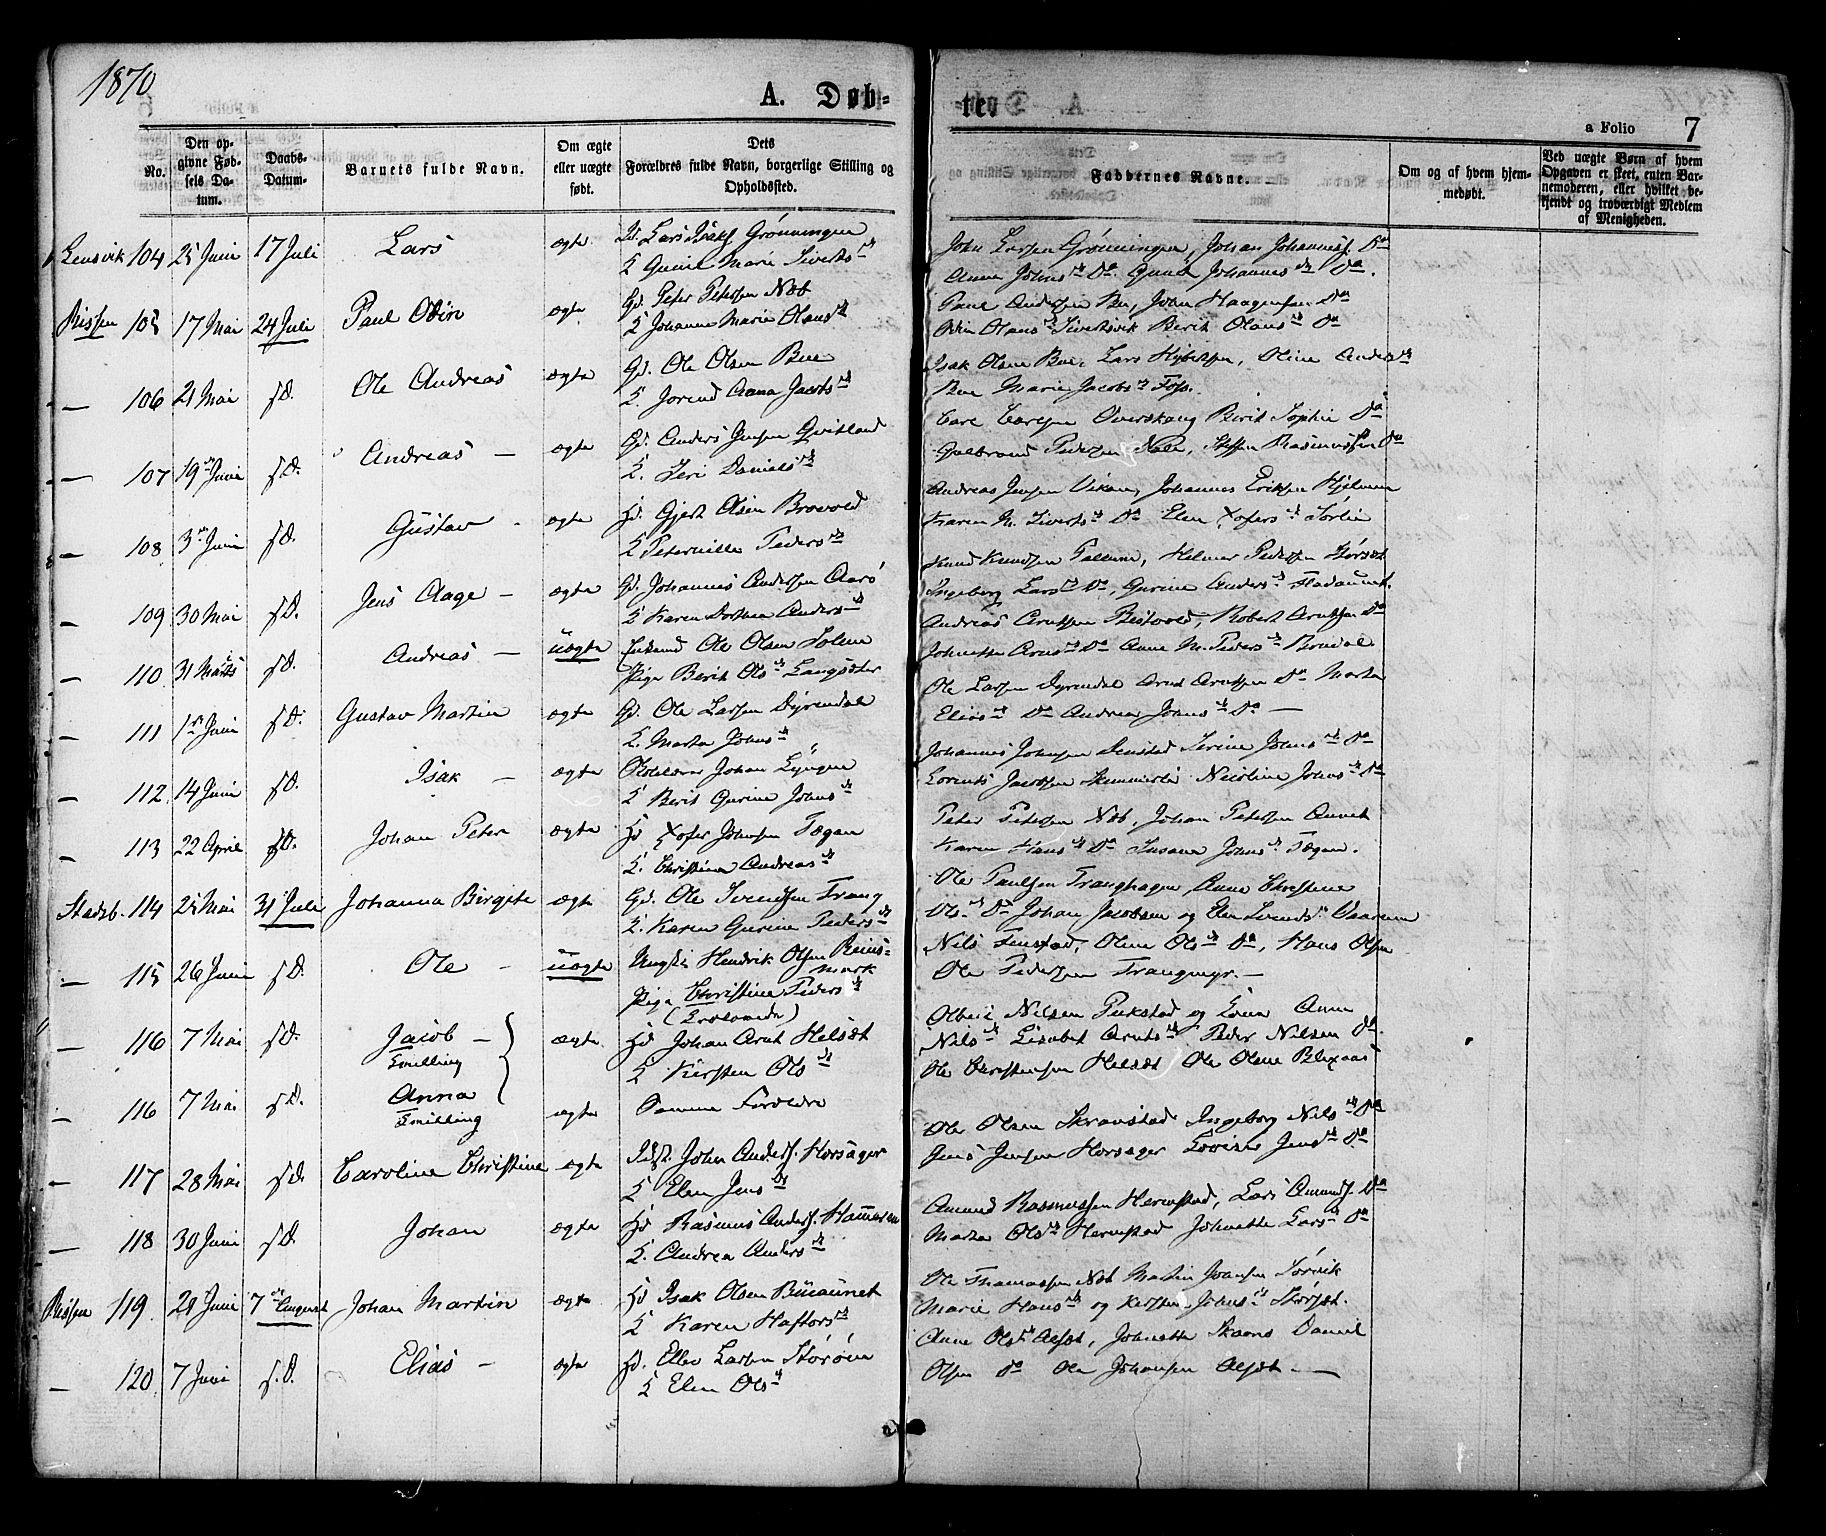 1870
A. Døb-
te.
a Folio 7
No.
Den opgivne Fødsels Datum.
Daabs-Datum.
Barnets fulde Navn.
Om ægte eller uægte født.
Dets Forældres fulde Navn, borgerlige Stilling og Opholdssted.
Faddernes Navne.
Om og af hvem hjemmedøbt.
Ved uægte Børn af hvem Opgaven er skeet, enten Barnemoderen, eller hvilket bekjendt og troværdigt Medlem af Menigheden.
Lensvik 104 25 Juni 17 Juli Lars ægte Gd. Lars Isaks. Grønningen
K Gurine Marie Siverts
John Larsen Grønningen, Johan Johannesf. Do
Anne Johns Do Johannes Do.
Rissen 105 17 Mai 24 Juli Paul Odin ægte Gd. Peter Petersen Næb
K Johanna Marie Olaus
Paul Andersen Bue, John Haagensen Do
Olaus Sivertsvik Berit Olaus Do
— 106 21 Mai s.D. Ole Andreas ægte Gd. Ole Olsen Bue
K. Jorend Anna Jacobs
Isak Olsen Bue, Lars Olsen, Oline Anders
Bue Marie Jacobs Foss.
— 107 19 Juni s.D. Andreas — ægte Gd. Anders Jensen Qvitland
K. Seri Daniels
Carl Larsen Overskaug Berit Sophie Do
Gulbrand Pedersen, Steffen Rasmussen Do
— 108 3 Juni s.D. Gustav — ægte Hd. Gjert Olsen Brovold
K Peternille Peders
Andreas Jensen Vikan, Johannes Eriksen
Karen M. Siverts Do Elen Xofers Sørlie
— 109 30 Mai s.D. Jens Aage — ægte Gd. Johannes Andersen Aarø
K Karen Dorthea Anders
Knud Knudsen, Helmer Pedersen Størset
Ingeborg Lars Do, Gurine Anders Fladaunet.
— 110 31 Marts s.D. Andreas — uægte Enkemd Ole Olsen Solem
Pige Berit Ols Langsæter
Andreas Arntsen, Robert Arntsen Do
Johnetta Arns Do Anne M. Peders
— 111 1 Juni s.D. Gustav Martin ægte Gd. Ole Larsen Dyrendal
K. Marta Johns
Ole Larsen Dyrendal Arnt Arntsen Do Marta
Elias Do Andrea Johns Do —
— 112 14 Juni s.D. Isak — ægte Johan Lyngen
K Berit Gurine Johns
Johannes Johnsen Denstad Serine Johns Do
Lorents Jacobsen Nicoline Johns Do
— 113 22 April s.D. Johan Peter ægte Hd Xofer Johnsen Tægan
K. Christina Andreas
Peter Petersen Næb, Johan Petersen
Karen Hans Do Susane Johns Tægan.
Stadsb. 114 25 Mai 31 Juli Johanna Birgite ægte Gd. Ole Svendsen Frang
K. Karen Gurine Peders
Ole Paulsen, Anne Christine
Ols Do Johan Jacobsen og Elen Svends
— 115 26 Juni s.D. Ole — uægte Ungk. Hendrik Olsen Reins-
mark
Pige Christine Peders
Nils Fenstad, Oline Ols Do, Hans Olsen
Ole Pedersen —
— 116 7 Mai s.D. Jacob —
Tvilling ægte Hd Johan Arnt Helsæt
K Kirsten Ols
Nilsen Pukstad og Anne
Nils Lisabet Arnts Peder Nilsen Do.
Ole Christensen Helsæt Ole Olsen
— 116 7 Mai s.D. Anna
Tvilling ægte Samme Forældre
— 117 28 Mai s.D. Caroline Christine ægte John Anders. Horsager
K Elen Jens
Ole Olsen Skravstad Ingeborg Nils Do
Jens Jensen Horsager Lovise Jens Do
— 118 30 Juni s.D. Johan ægte Hd Rasmus Anders.
K. Andrea Anders
Amund Rasmussen Hermstad, Lars Amunds. Do
Marta Ols Hermstad Johnetta Lars Do
Rissen 119 21 Juni 7 August Johan Martin ægte Hd Isak Olsen Bueaunet
K Karen Haftors
Ole Thomassen Næb Martin Johnsen Sørvik
Marie Hans og Kirsten Johns Størset.
— 120 7 Juni s.D. Elias — ægte Hd. Ellev Larsen Storøien
K Elen Ols
Anne Ols Alset, Johnetta Daniel
Olsen Do Ole Johansen Alset. —